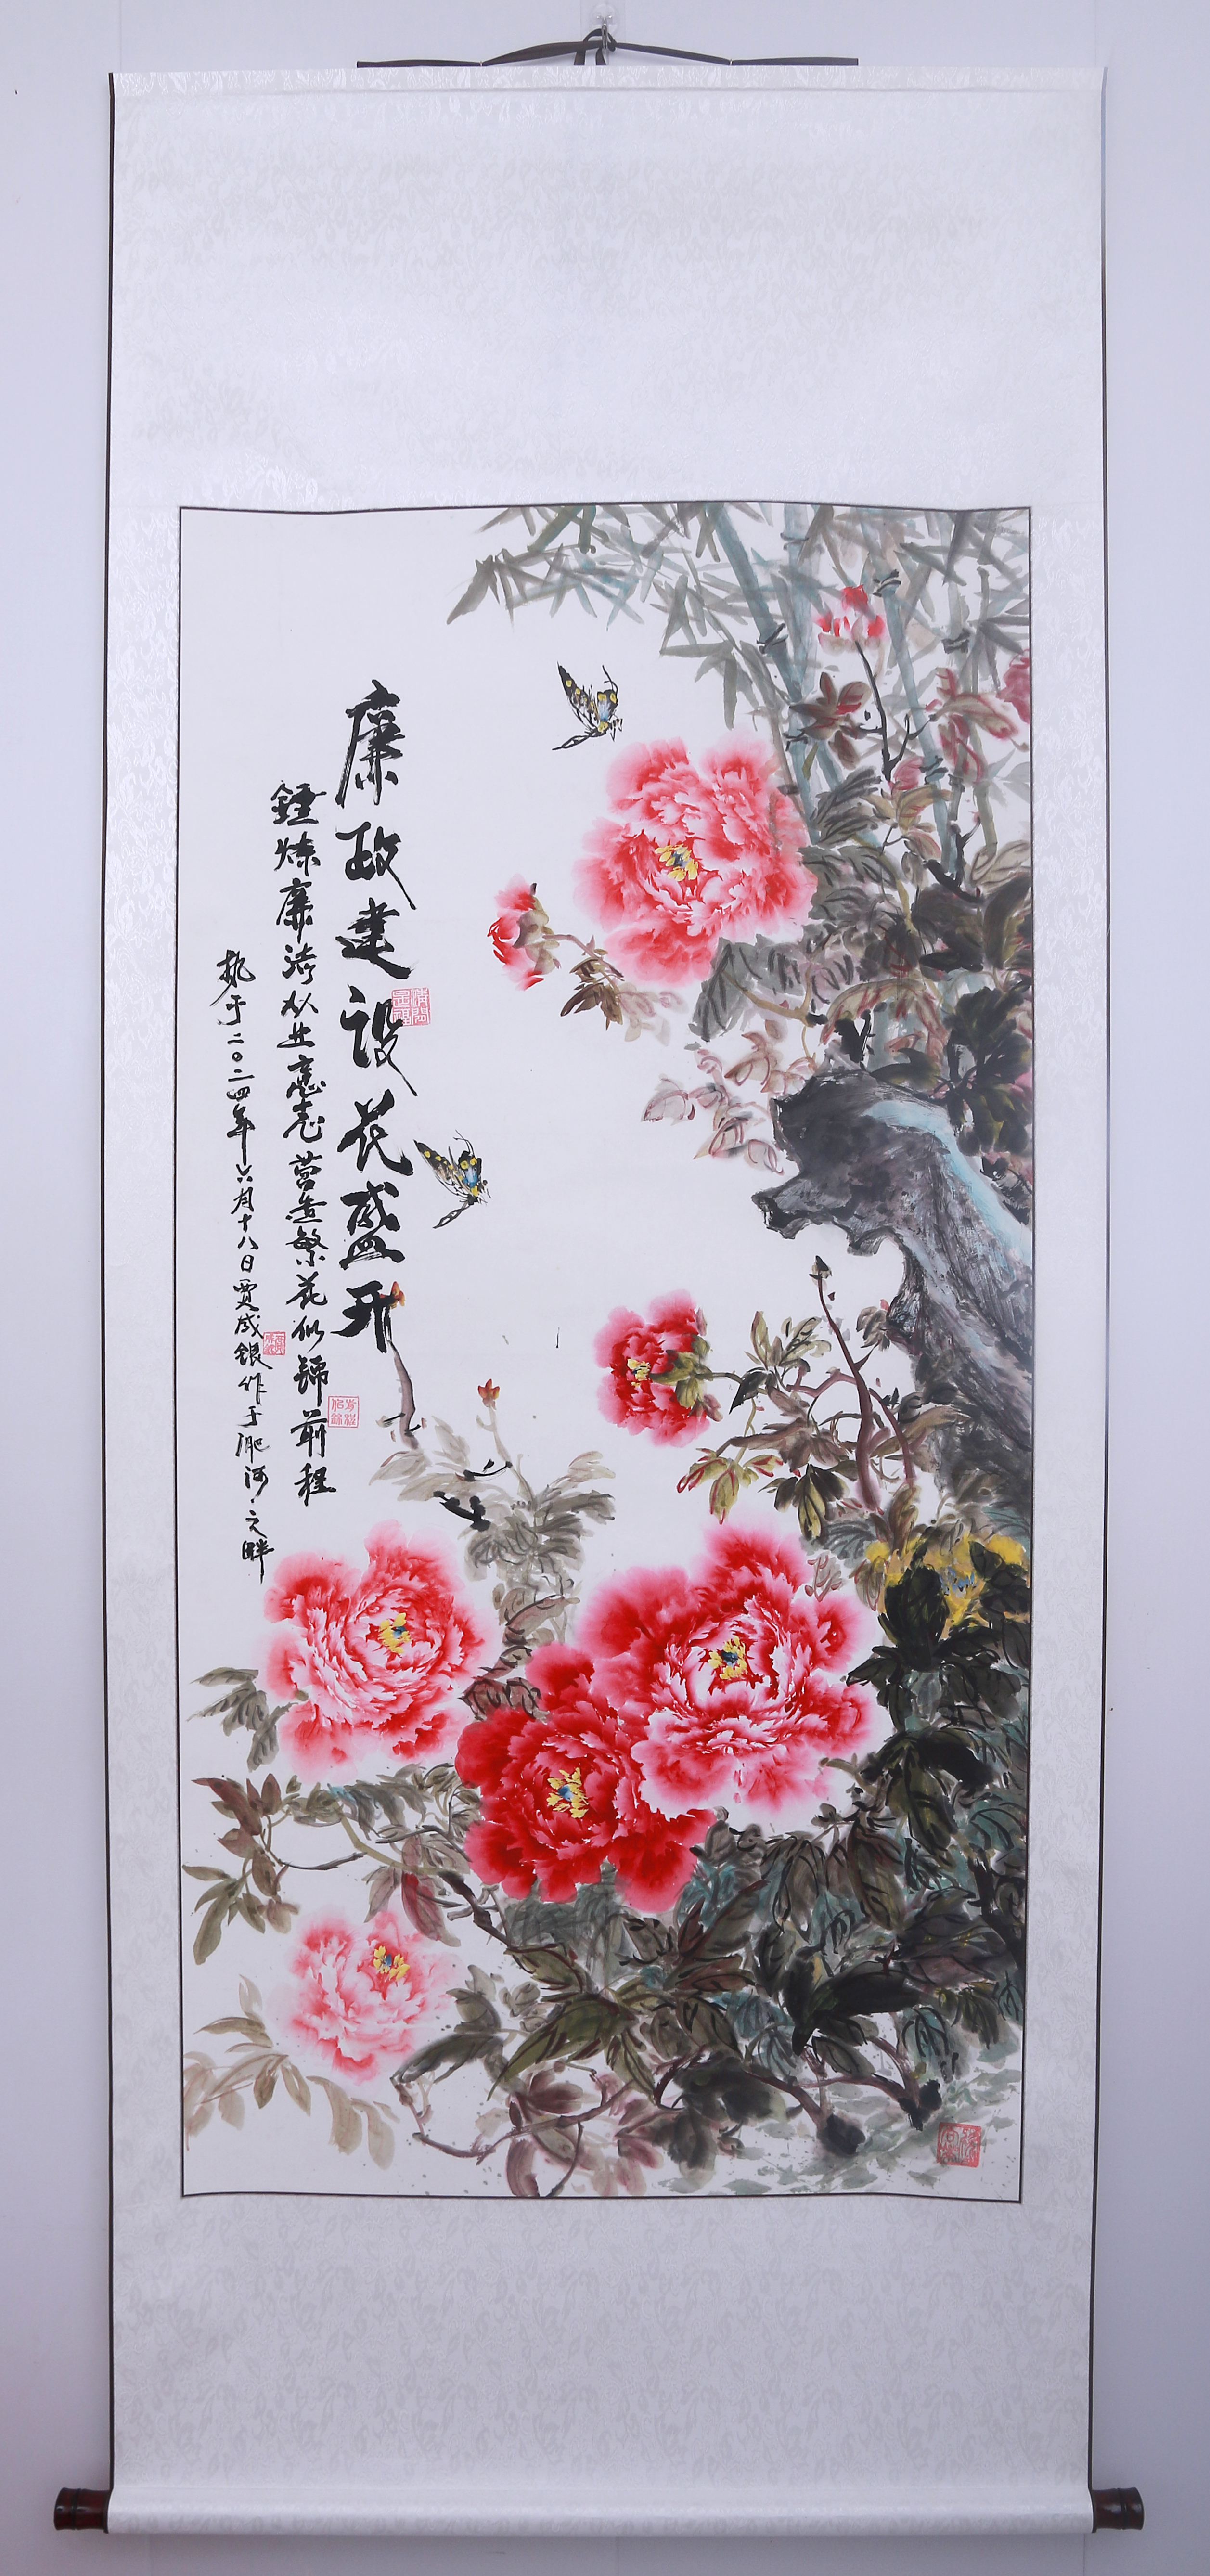 廉政建设花盛开
錘炼廉洁从业意志 营造繁花似锦前程
执于二〇二四年六月十八日贾成银作于淝河之畔